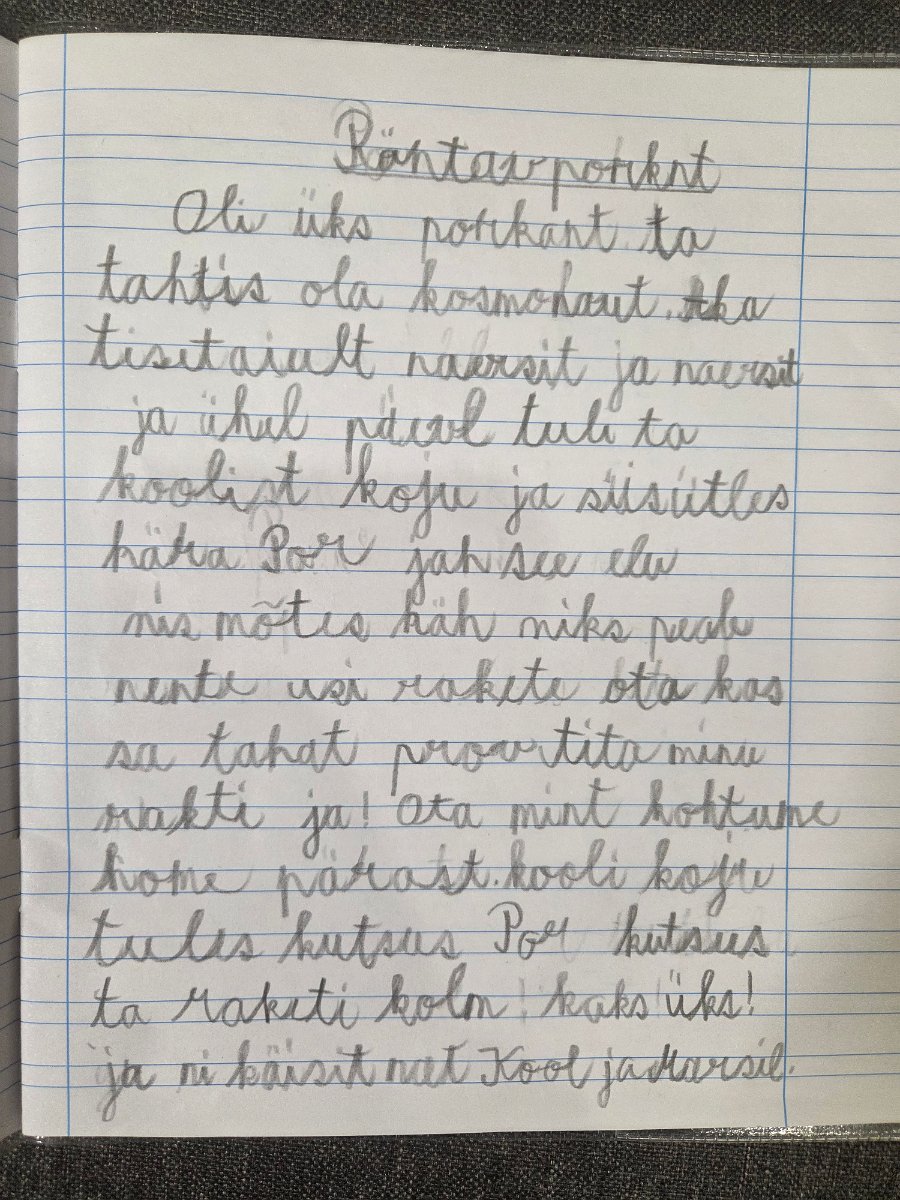 Räntav porknt
Oli üks porkant ta
tahtis ola kosmonaut. Aka
tisetaialt naersit ja naersit
ja ühel päeval tuli ta
koolist koju ja siis ütles
hära Por jah see elu
mis mõtes häh niks peale
nente usi rakete ota kas
sa tahat provrtita minu
rakti ja! Ota mint kohtume
home pärast. kooli koju
tules kutsus Por kutsus
ta raketi kolm! kaks! üks!
ja ni käisit nat Kool ja Marsil.